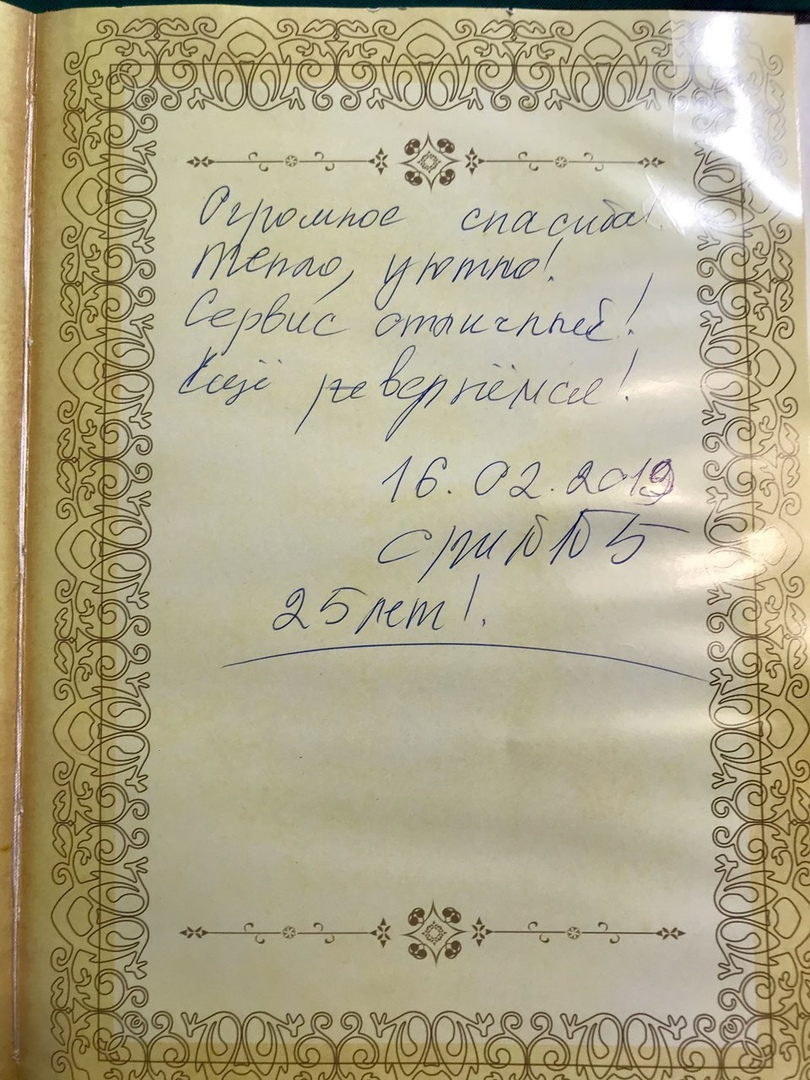 Огромное спасибо!
Тепло, уютно!
Сервис отличный!
Ещё вернёмся!
16.02.2019
25 лет!